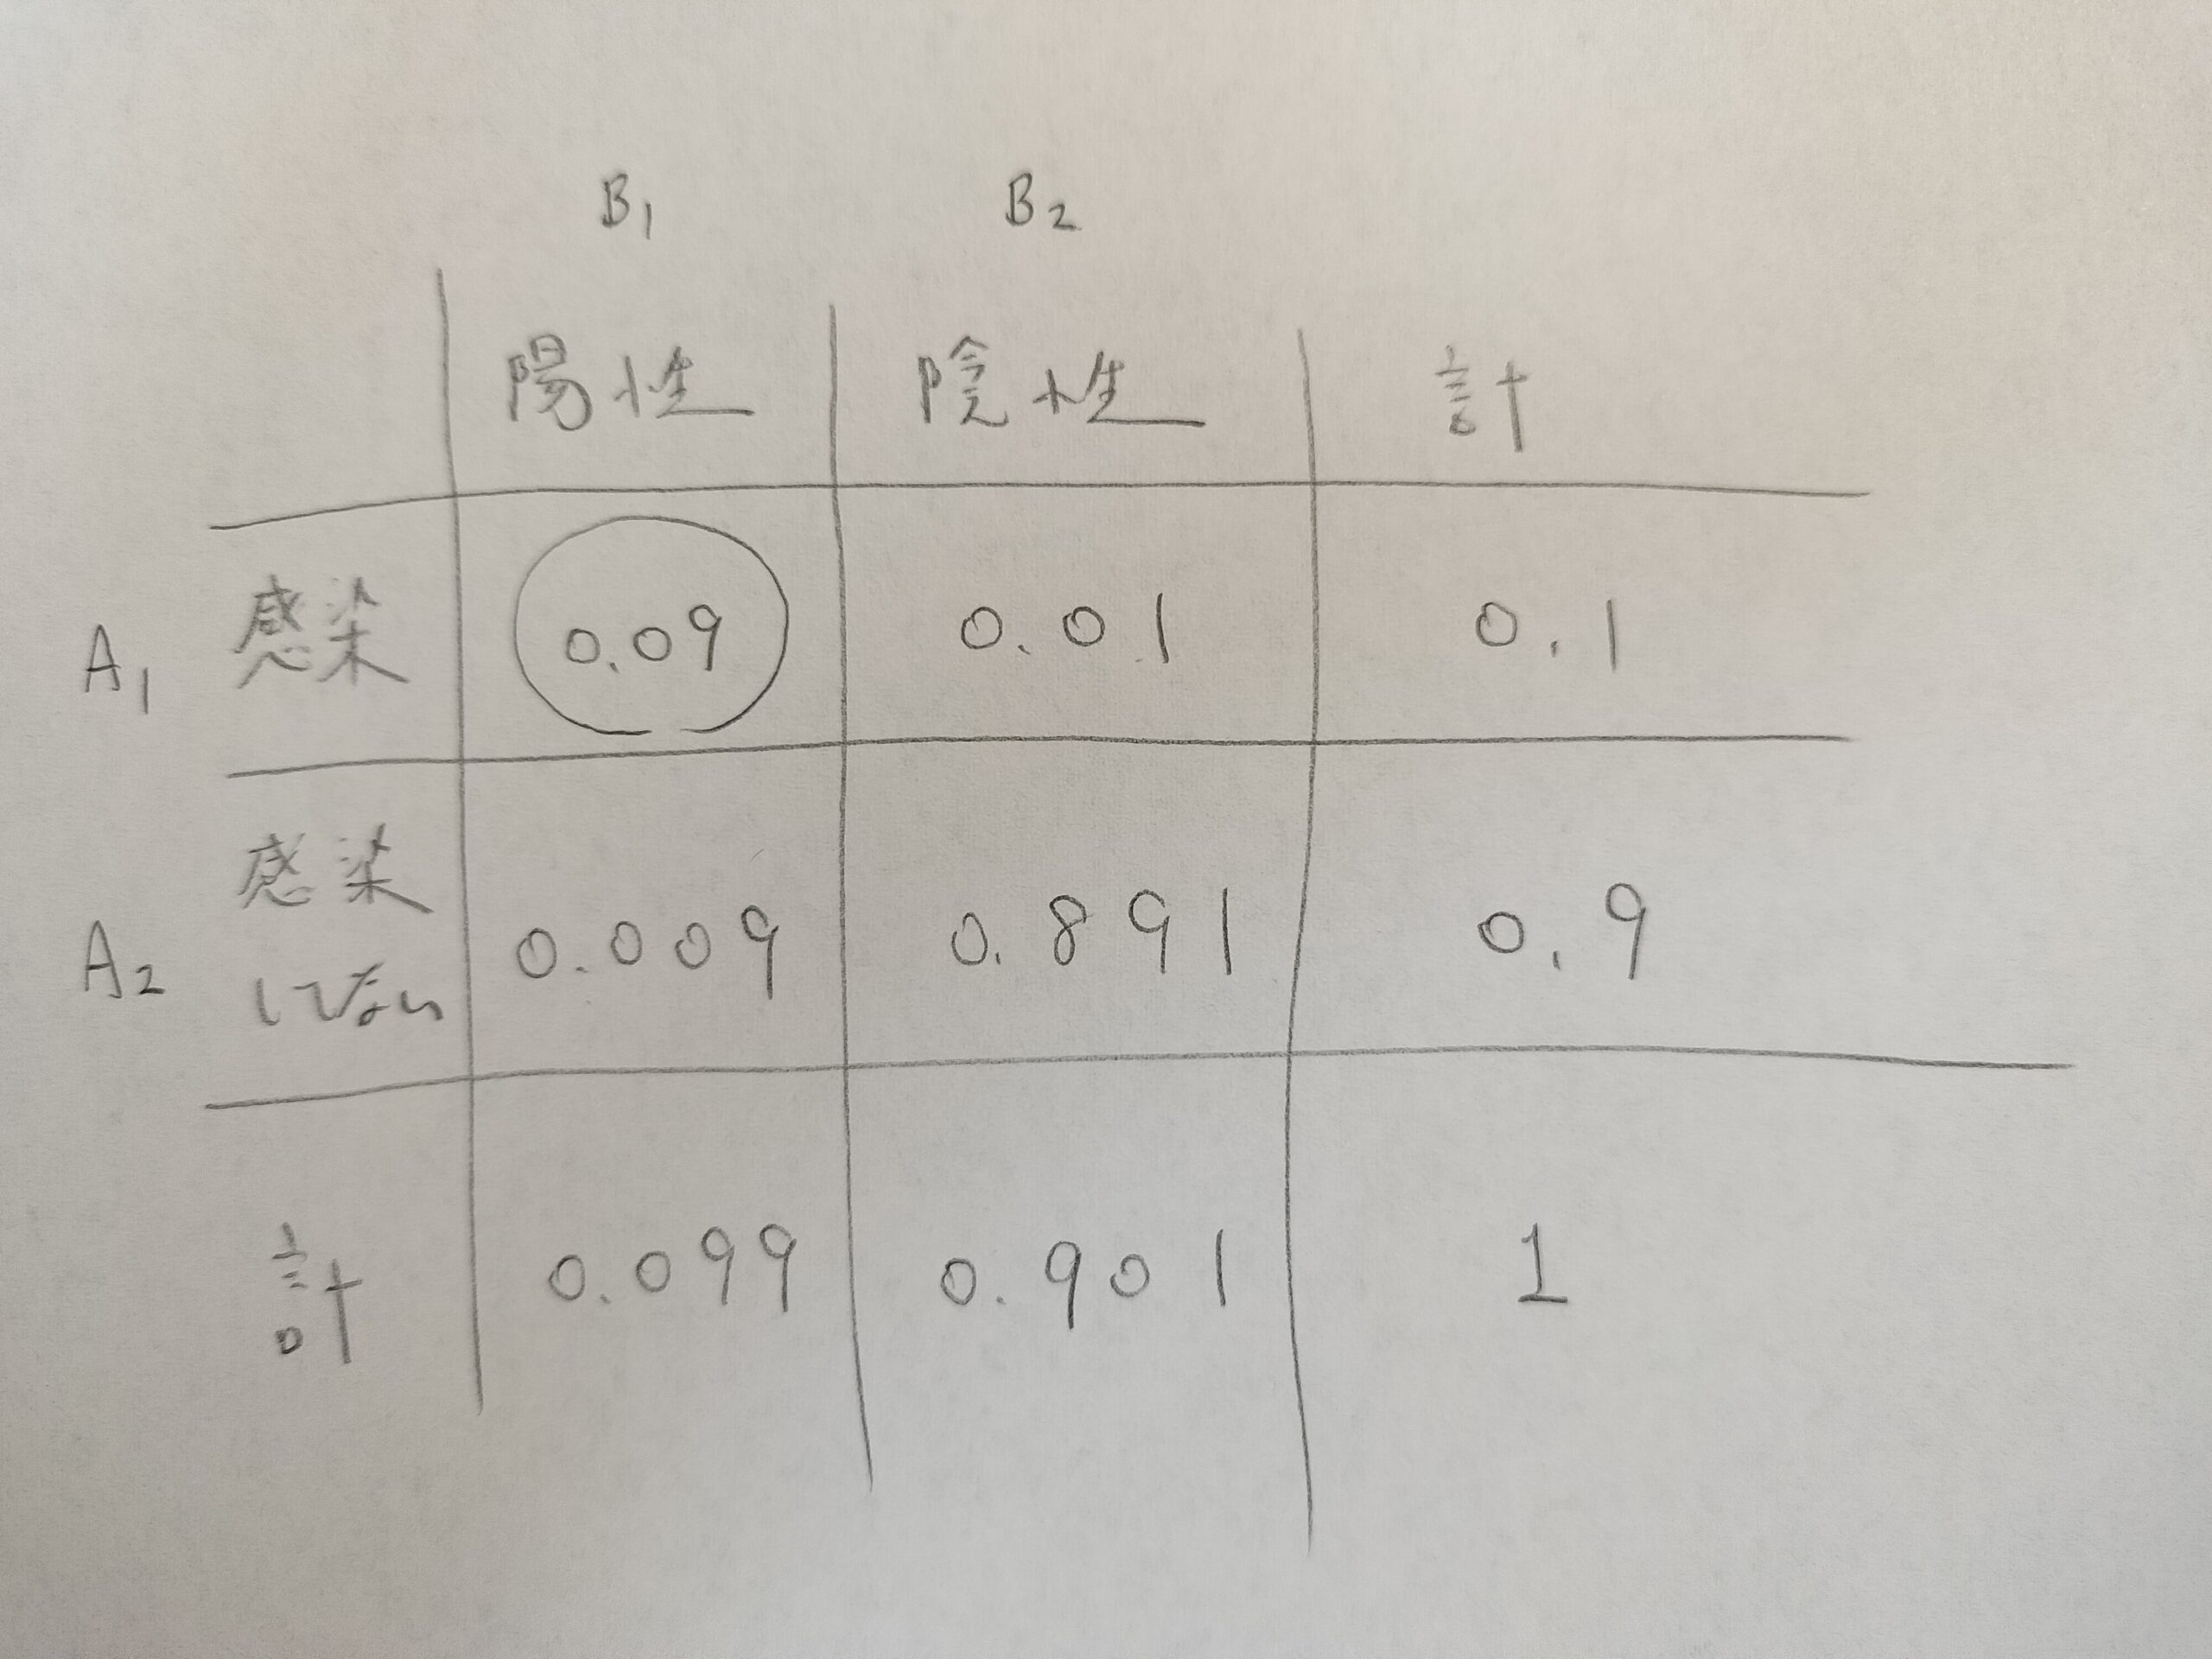 B₁ B₂
陽性 陰性 計
A₁ 感染 0.09 0.01 0.1
感染
A₂ してない 0.009 0.891 0.9
計 0.099 0.901 1